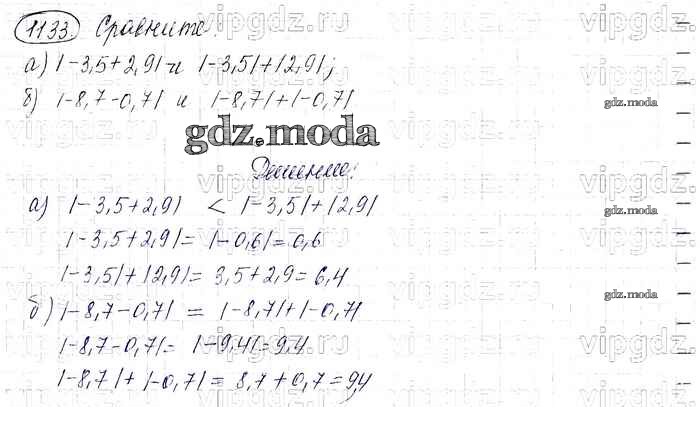 1133. Сравните:
а) |-3,5+2,9| и |-3,5|+|2,9|;
б) |-8,7-0,7| и |-8,7|+|-0,7|
gdz.moda
Решение:
а) |-3,5+2,9| < |-3,5|+|2,9|
|-3,5+2,9|= |-0,6|=0,6
|-3,5|+|2,9|= 3,5+2,9=6,4
б) |-8,7-0,7| = |-8,7|+|-0,7|
|-8,7-0,7|= |-9,4|=9,4
|-8,7|+|-0,7|= 8,7+0,7=9,4
vipgdz.ru
vipgdz.ru
vipgdz.ru
vipgdz.ru
vipgdz.ru
vipgdz.ru
gdz.moda
gdz.moda
gdz.moda